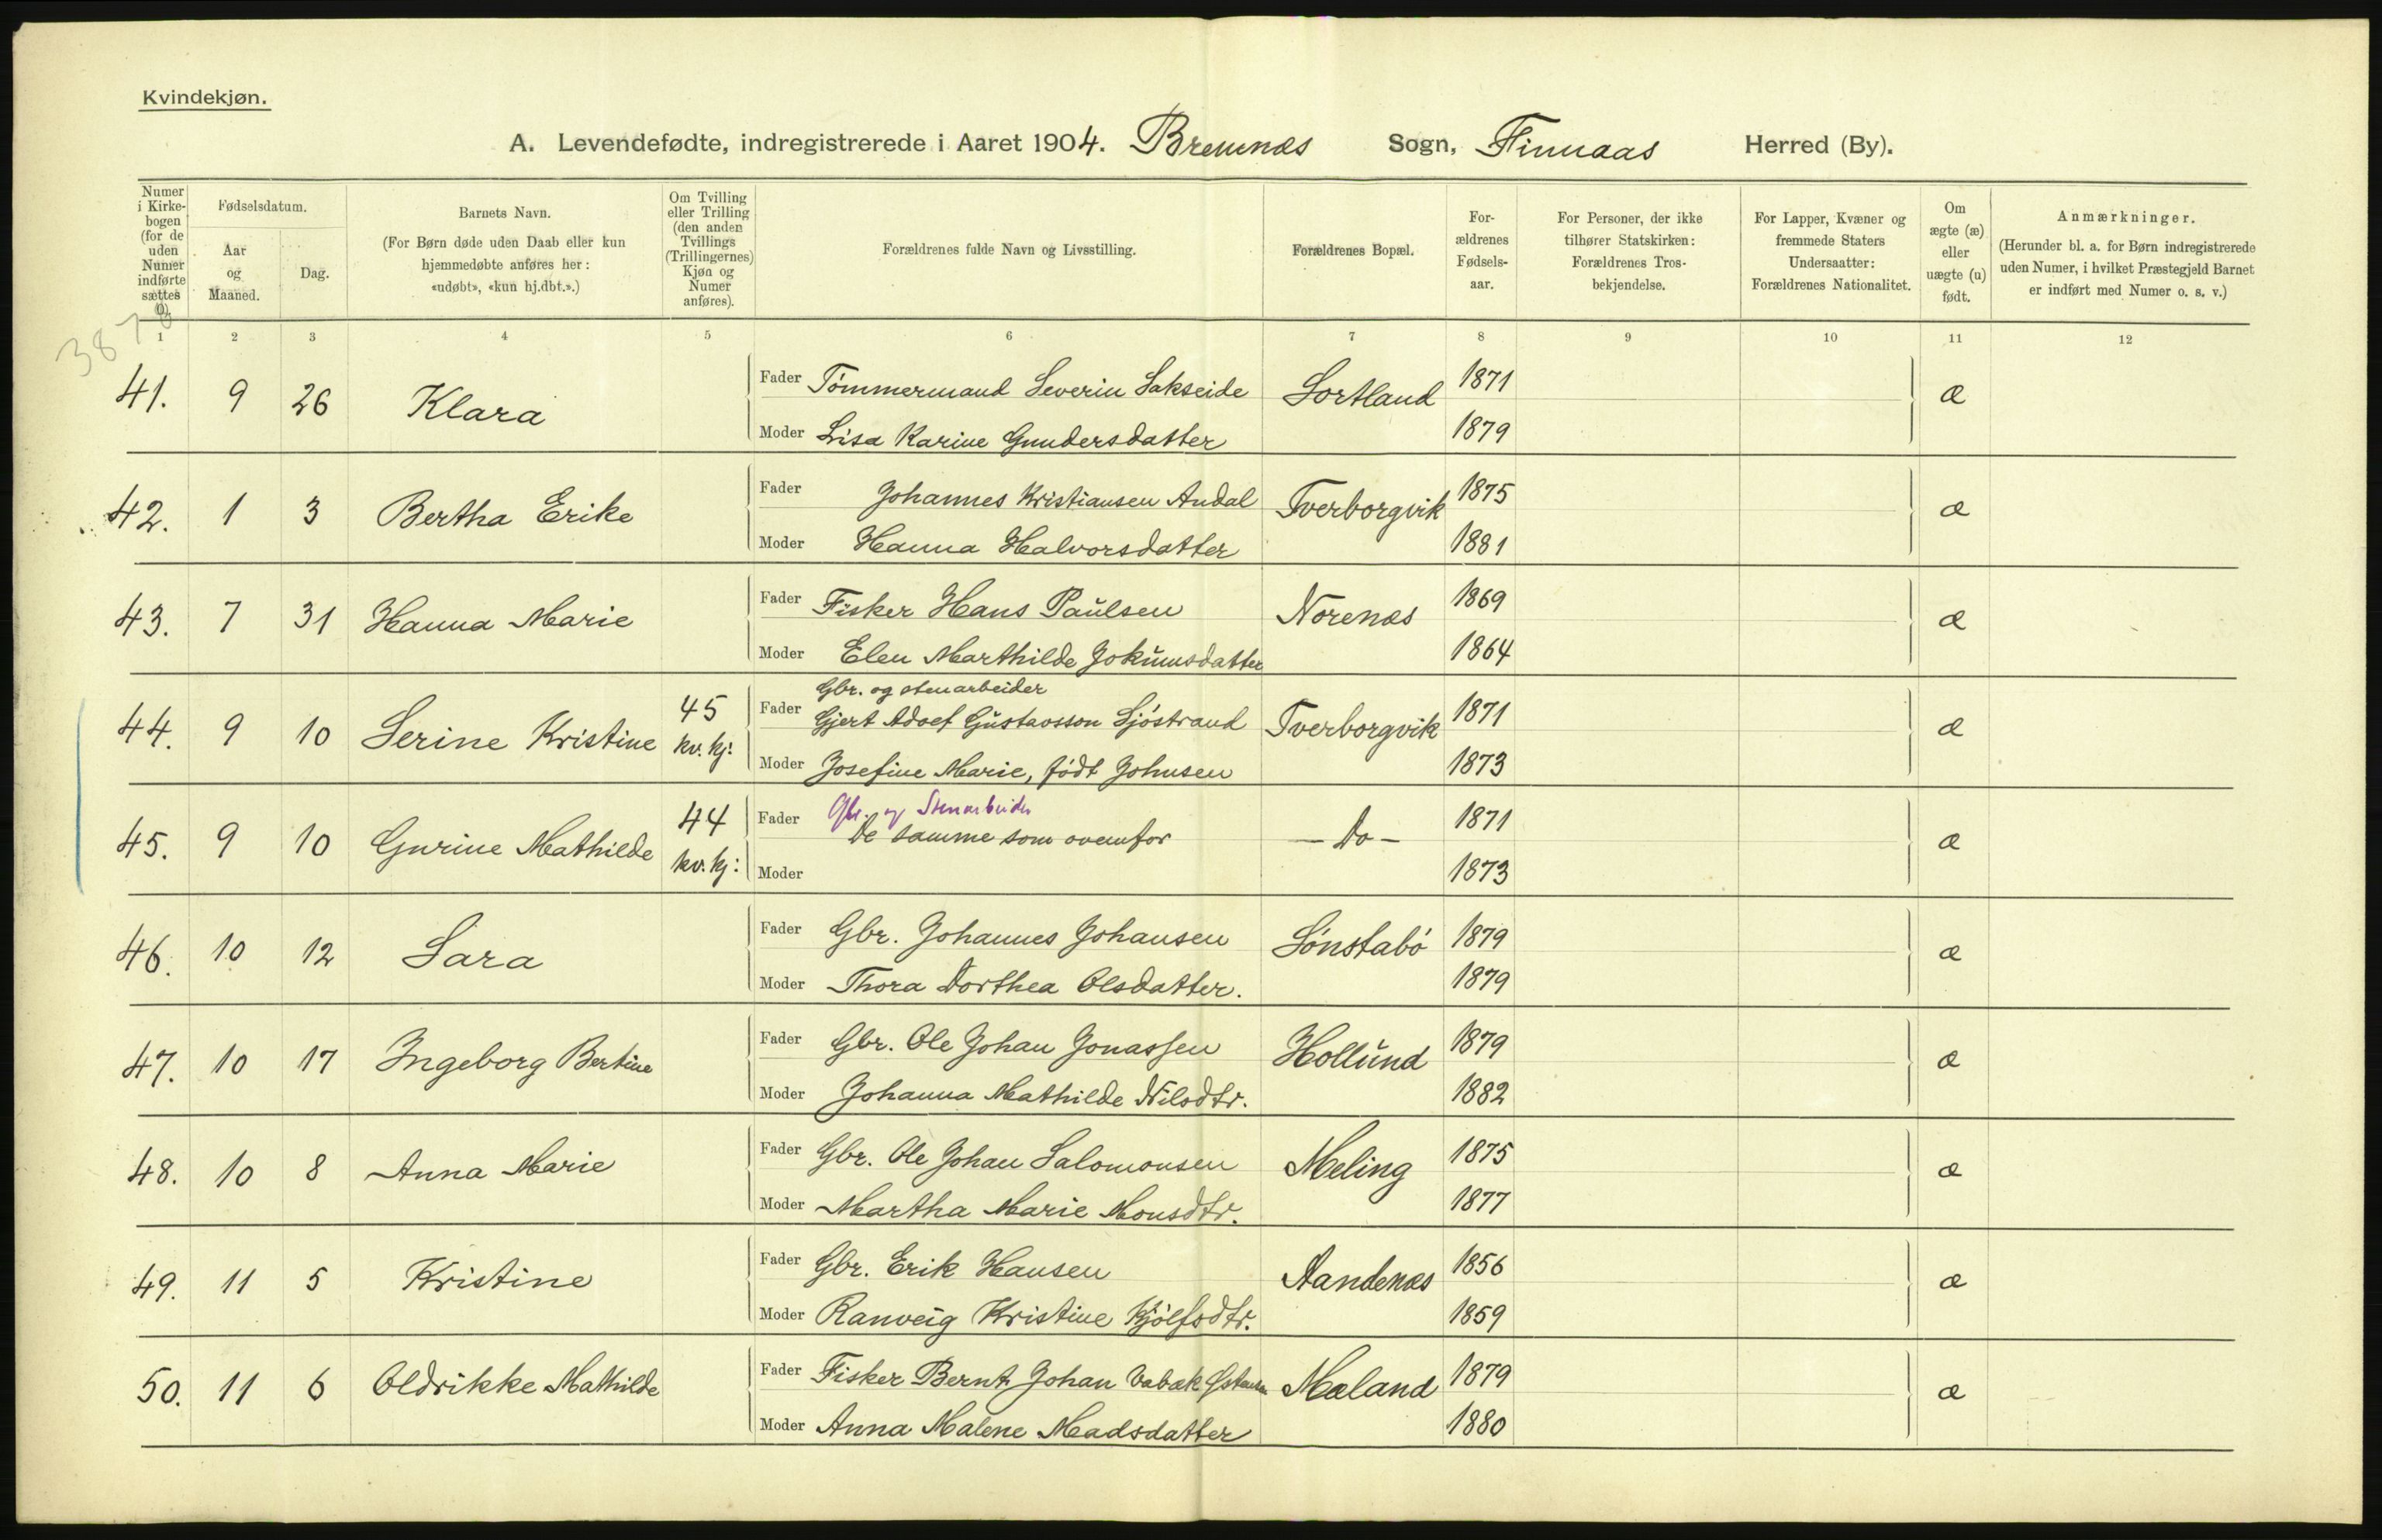 Kvindekjøn.
A. Levendefødte, indregistrerede i Aaret 1904. Bremnæs Sogn, Finnaas Herred (By).
Numer i Kirkebogen (for de uden Numer indførte sættes 0).
Fødselsdatum.
Aar og Maaned.
Dag.
Barnets Navn.
(For Børn døde uden Daab eller kun hjemmedøbte anføres her: «udøbt», «kun hj.dbt.».)
Om Tvilling eller Trilling (den anden Tvillings (Trillingernes) Kjøn og Numer anføres).
Forældrenes fulde Navn og Livsstilling.
Forældrenes Bopæl.
Forældrenes Fødselsaar.
For Personer, der ikke tilhører Statskirken: Forældrenes Trosbekjendelse.
For Lapper, Kvæner og fremmede Staters Undersaatter: Forældrenes Nationalitet.
Om ægte (æ) eller uægte (u) født.
Anmærkninger.
(Herunder bl. a. for Børn indregistrerede uden Numer, i hvilket Præstegjeld Barnet er indført med Numer o. s. v.)
1 2 3 4 5 6 7 8 9 10 11 12
41. 9 26 Klara Fader Tömmermand Severin Sakseide Sortland 1871 æ
Moder Lisa Karine Gundersdatter 1879
42. 1 3 Bertha Erike Fader Johannes Kristiansen Andal Tverborgvik 1875 æ
Moder Hanna Halvorsdatter 1881
43. 7 31 Hanna Marie Fader Fisker Hans Paulsen Norenæs 1869 æ
Moder Elen Marthilde Jokumsdatter 1864
Gbr. og stenarbeider
44. 9 10 Serine Kristine 45 kv. kj: Fader Gjert Adolf Gustavsson Sjöstrand Tverborgvik 1871 æ
Moder Josefine Marie, født Johnsen 1873
Gbr. og Stenarbeider
45. 9 10 Gurine Mathilde 44 kv. kj: Fader De samme som ovenfor — Do — 1871 æ
Moder 1873
46. 10 12 Sara Fader Gbr. Johannes Johansen Sönstabö 1879 æ
Moder Thora Dorthea Olsdatter. 1879
47. 10 17 Ingeborg Bertine Fader Gbr. Ole Johan Jonassen Hollund 1879 æ
Moder Johanna Mathilde Nilsdtr. 1882
48. 10 8 Anna Marie Fader Gbr. Ole Johan Salomonsen Meling 1875 æ
Moder Martha Marie Monsdtr. 1877
49. 11 5 Kristine Fader Gbr. Erik Hansen Aandenæs 1856 æ
Moder Ranveig Kristine Kjölfsdtr. 1859
50. 11 6 Oldrikke Mathilde Fader Fisker Bernt Johan Mæland 1879 æ
Moder Anna Malene Madsdatter 1880